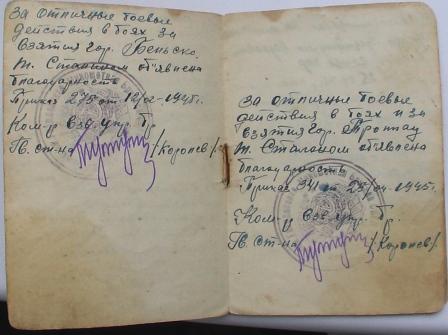 За отличные боевые
действия в боях за
взятия гор. Бельско.
т. Сталином об'явлена
благодарность
Приказ 275 от 12/02-1945г.
Ком-р Взв. упр. Бр.
Гв. ст-на /Королев/
За отличные боевые
действия в боях и за
взятия гор. Троппау
т. Сталином об'явлена
благодарность
Приказ 341 от 23/04-1945г.
Ком-р Взв. упр. Бр.
Гв. ст-на /Королев/